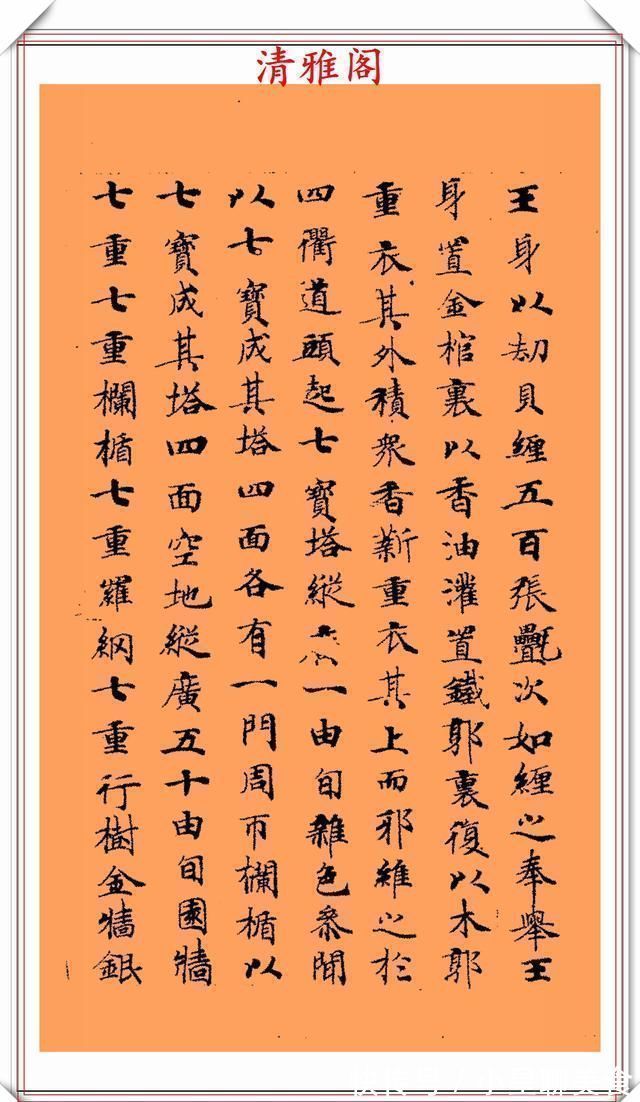 清雅阁
王身以劫貝纏五百張疊次如纏之奉舉王
身置金棺裏以香油灌置鐵郭裏復以木郭
重衣其外積衆香薪重衣其上而邪維之於
四衢道頭起七寶塔縱一由旬雜色參間
以七寶成其塔四面各有一門周帀欄楯以
七寶成其塔四面空地縱廣五十由旬園牆
七重七重欄楯七重羅網七重行樹金牆銀